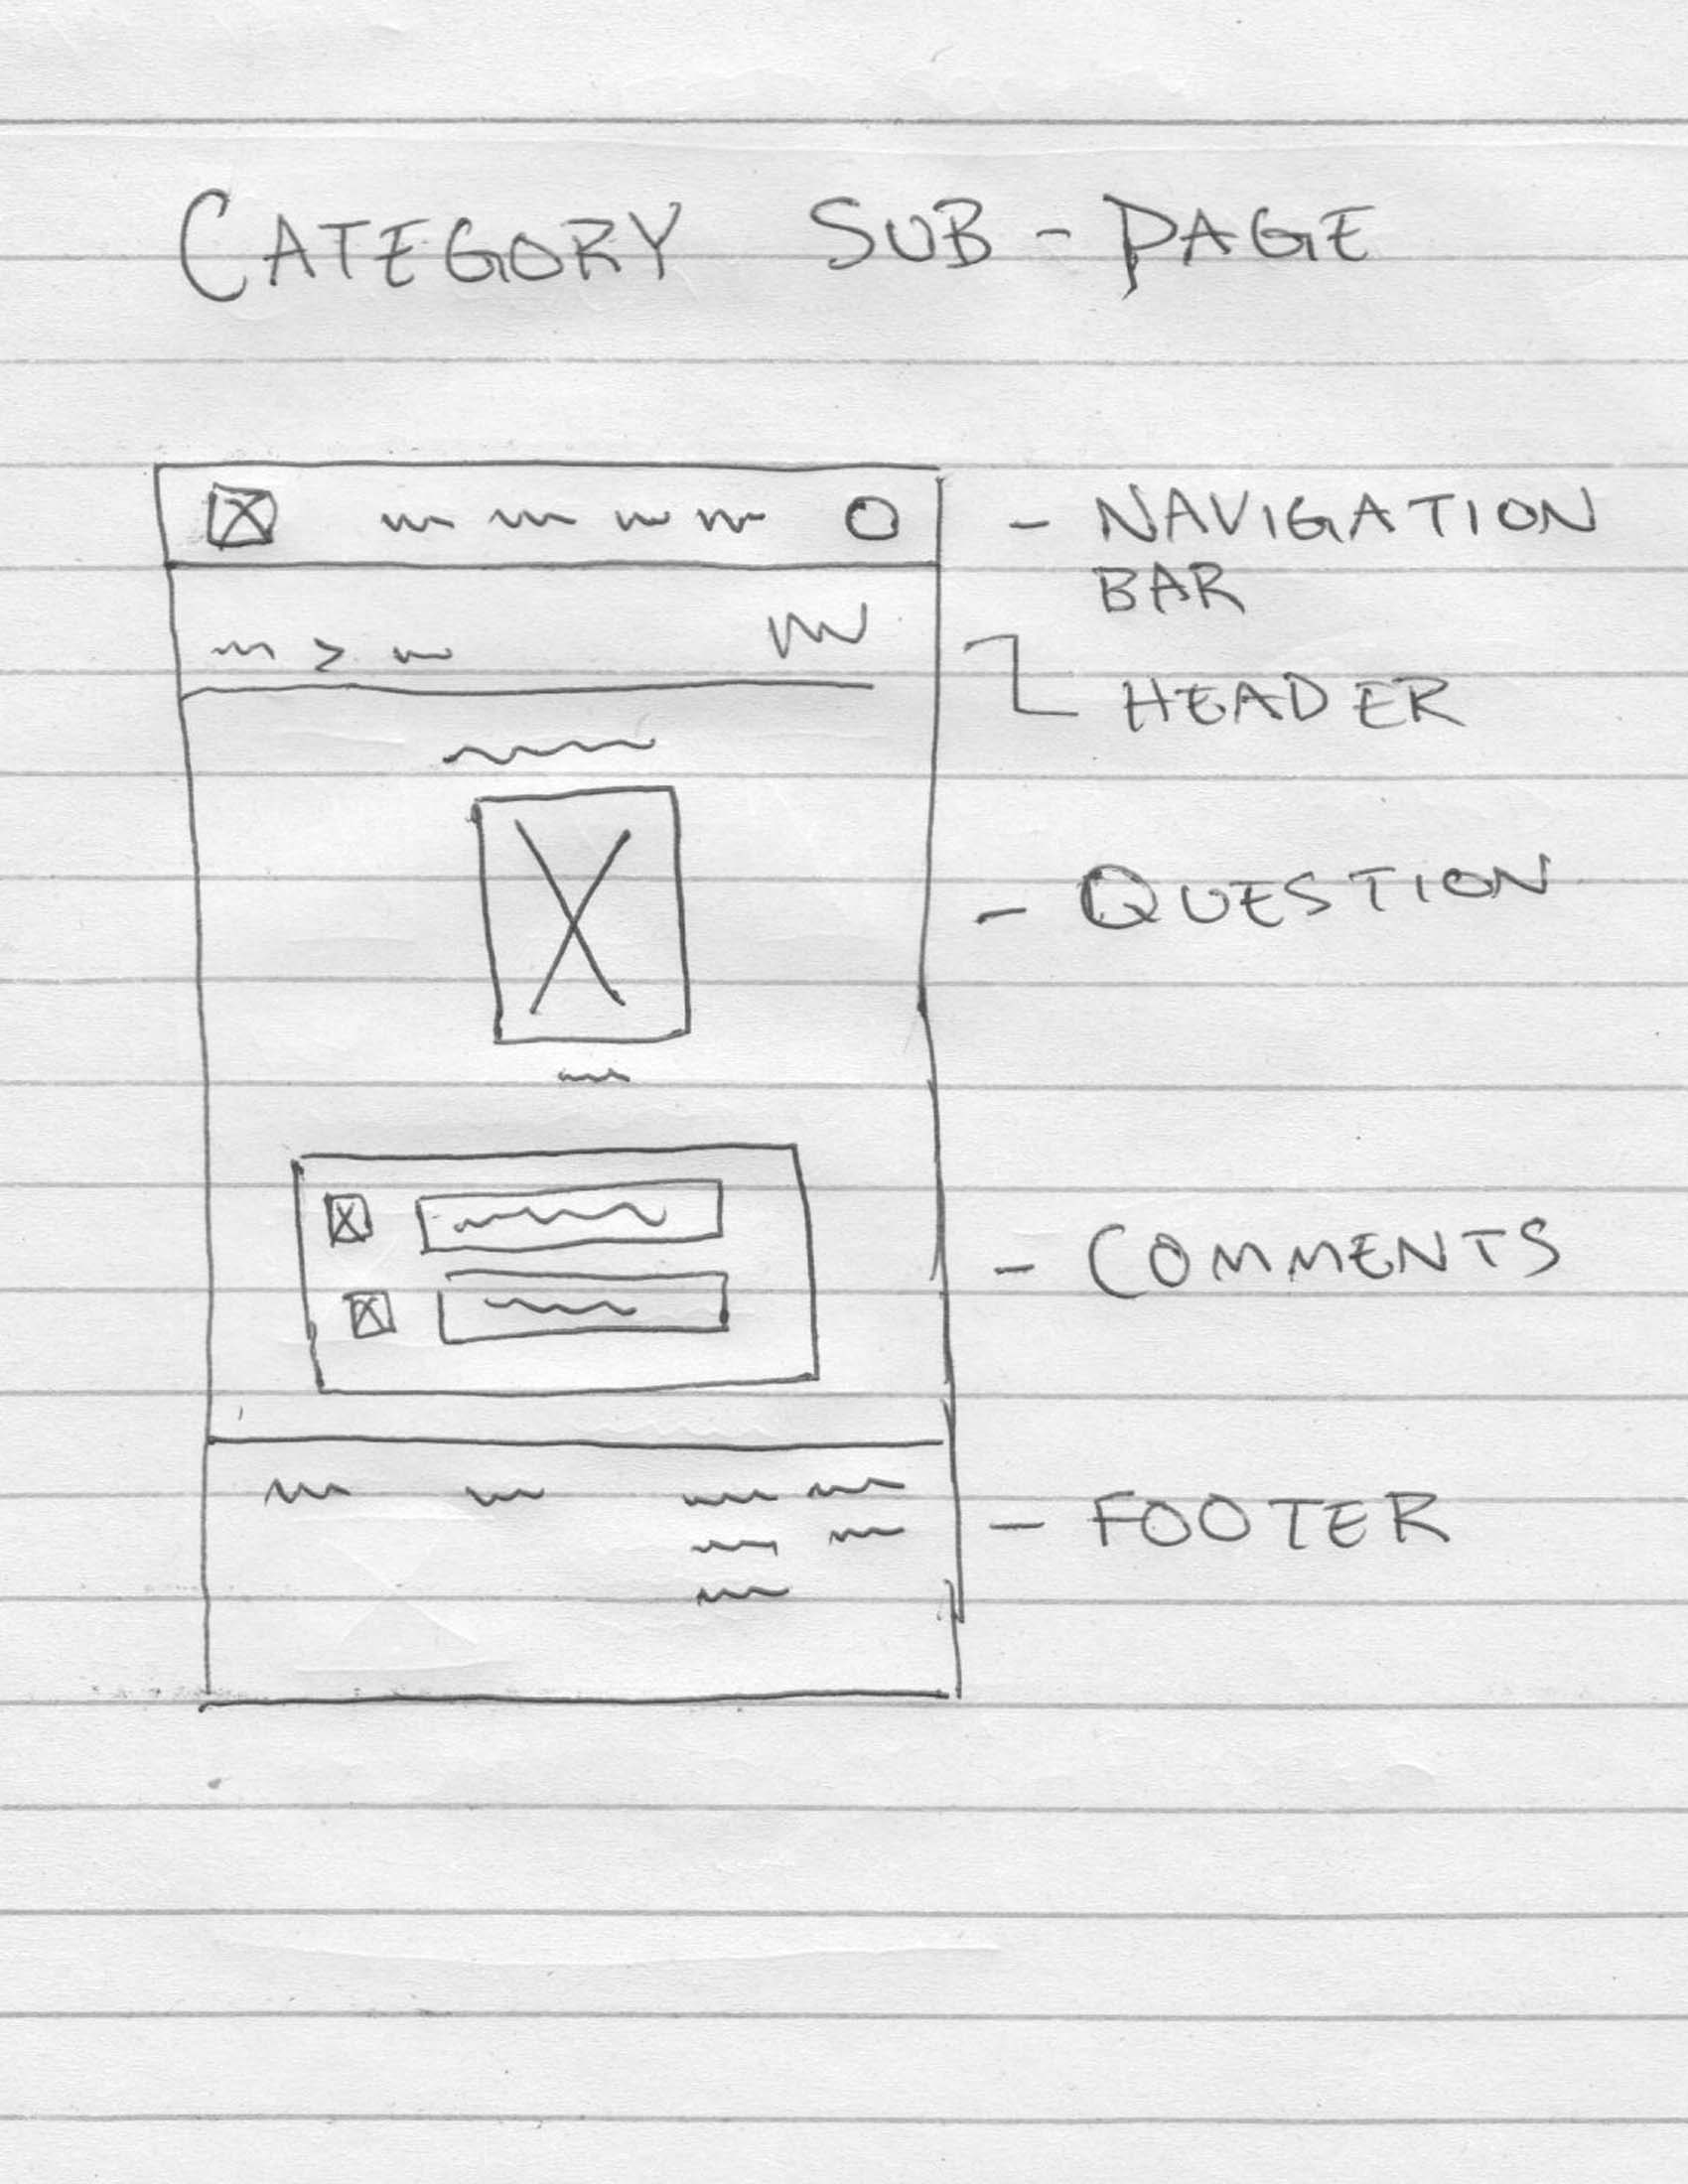 CATEGORY SUB-PAGE
- NAVIGATION
BAR
HEADER
- QUESTION
- COMMENTS
- FOOTER